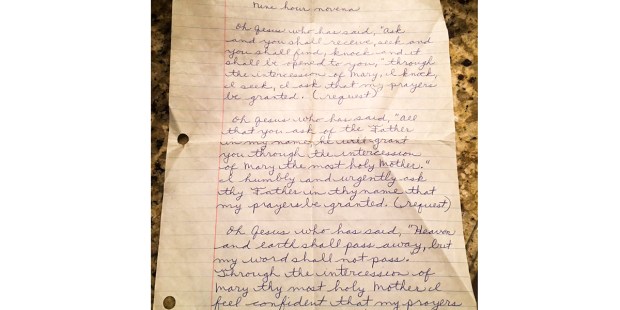 Nine hour novena
Oh Jesus who has said, "Ask
and you shall receive, seek and
you shall find, knock and it
shall be opened to you," through
the intercession of Mary, I knock,
I seek, I ask that my prayers
be granted. (request)
Oh Jesus who has said, "All
that you ask of the Father
in my name, he will grant
you through the intercession
of Mary the most holy Mother."
I humbly and urgently ask
thy Father in thy name that
my prayers be granted. (request)
Oh Jesus who has said, "Heaven
and earth shall pass away, but
my word shall not pass.
Through the intercession of
Mary thy most holy Mother I
feel confident that my prayers